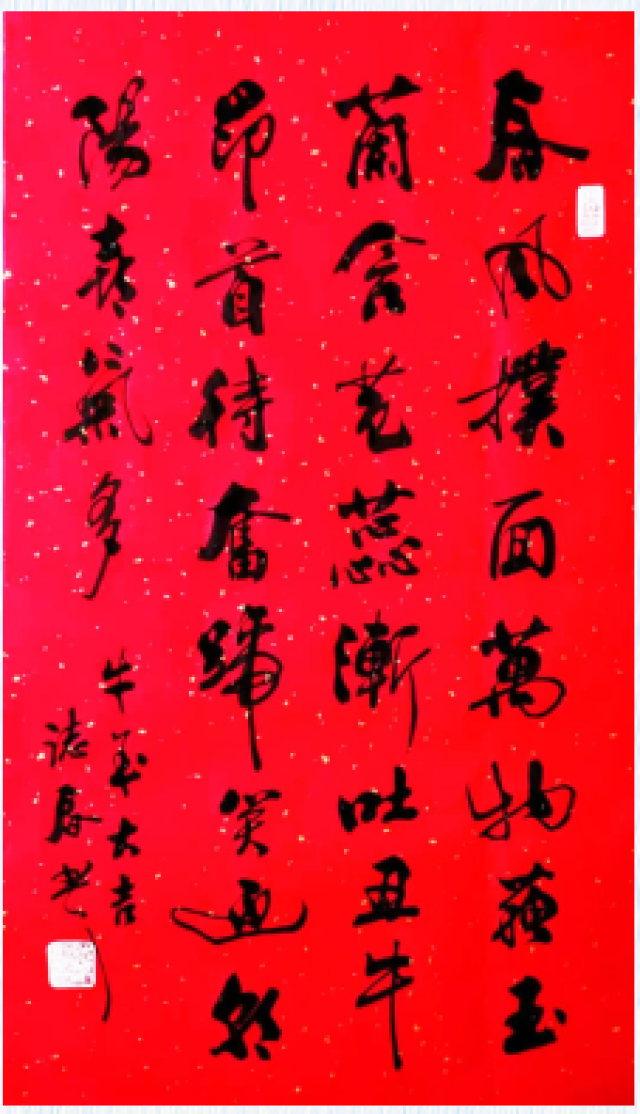 春风撲面萬物蘇玉
蘭含苞蕊漸吐丑牛
昂首待奮蹄笑迎朝
陽喜氣多
牛年大吉
誌春书